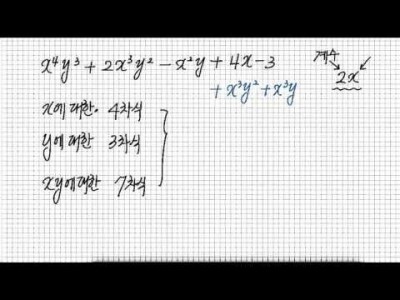 x⁴y³ + 2x³y² - x²y + 4x - 3
+ x³y² + x³y
계수
2x
x에 대한 4차식
y에 대한 3차식
xy에 대한 7차식